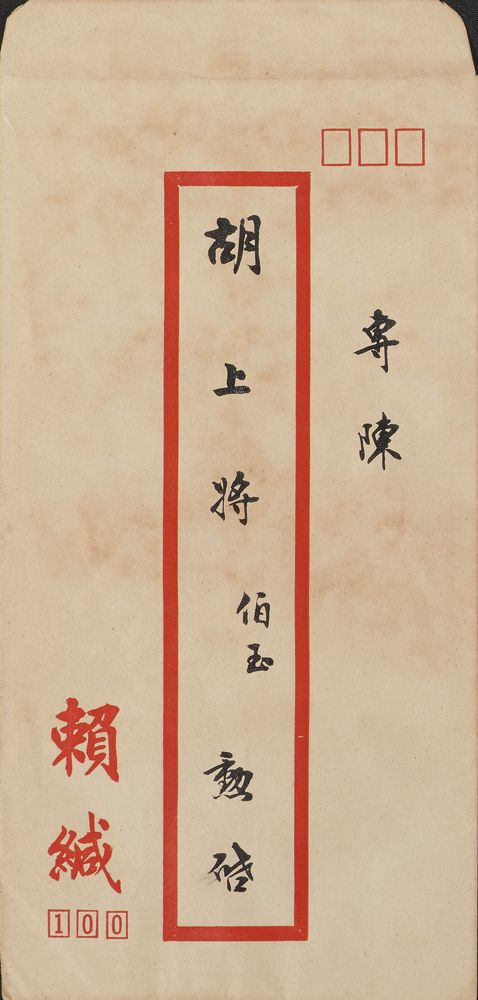 專陳
胡上將伯玉勛啟
賴緘
100